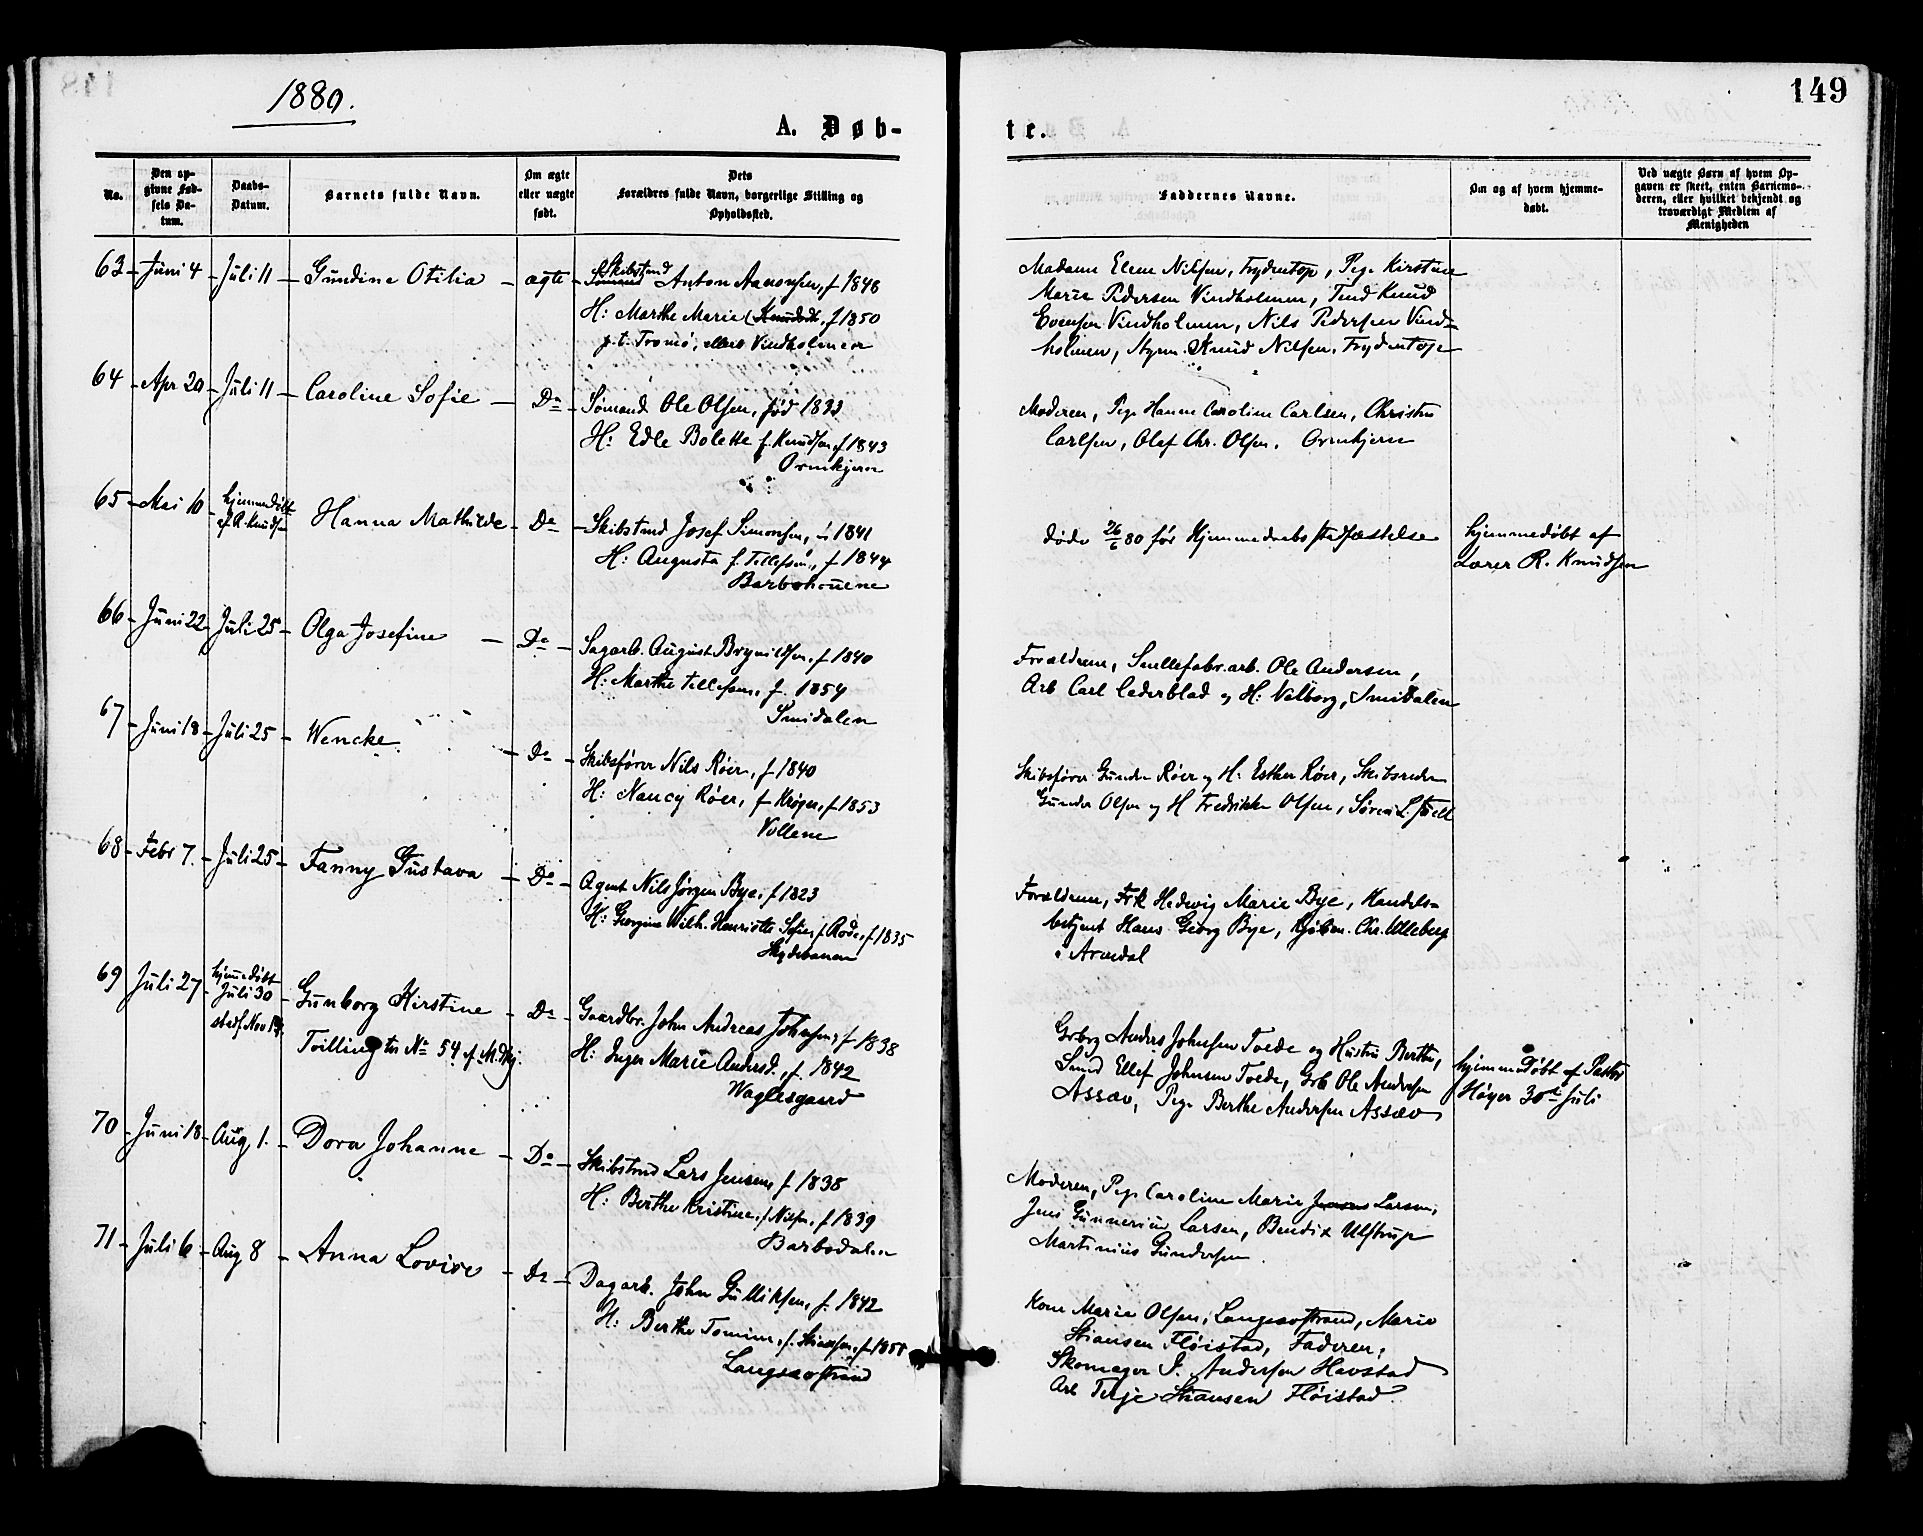 1880.
149
A. Døb-
te.
No.
Den op-
givne Fød-
sels Da-
tum.
Daabs-
Datum.
Barnets fulde Navn.
Om ægte
eller uægte
født.
Dets
Forældres fulde Navn, borgerlige Stilling og
Opholdssted.
Faddernes Navne.
Om og af hvem hjemme-
døbt.
Ved uægte Børn af hvem Op-
gaven er skeet, enten Barnemo-
deren, eller hvilket bekjendt og
troværdigt Medlem af
Menigheden
63 - Juni 4 - Juli 11 - Gundine Otilia - ægte -
Skibstmd
Sømand Anton Aanonsen, f 1848
H: Marthe Marie Knudsdt. f 1850
p.t. Tromø, ellers Vindholmen
Madame Elene Nilsen, Frydentop, Pige Kirstine
Marie Pedersen Vindholmen, Tmd Knud
Evensen Vindholmen, Nils Pedersen Vind=
holmen, Styrm. Knud Nilsen, Frydentop
64 - Apr 20 - Juli 11 - Caroline Sofie - Do -
Sømand Ole Olsen, fød 1833
H: Edle Bolette f. Knudsen, f 1843
Ormkjern
Moderen, Pige Hanne Caroline Carlsen, Christen
Carlsen, Olef Chr. Olsen. Ormkjern
65 - Mai 16 - hjemmedøbt
af R. Knudsen
Hanna Mathilde - Do -
Skibstmd Josef Simonsen, f 1841
H: Augusta f. Tellefsen, f 1844
Barbohouene
døde 26/6 80 før Hjemmedaabs stadfæstelse
hjemmedøbt af
Lærer R. Knudsen
66 - Juni 22 - Juli 25 - Olga Josefine - Do -
Sagarb. August Brynildsen, f 1840
H: Marthe Tellefsen, f. 1854
Smidalen
Forældrene, Snellefabr.arb. Ole Andersen,
Arb Carl Cederblad og H: Valborg, Smidalen
67 - Juni 18 - Juli 25 - Wencke - Do -
Skibsfører Nils Røer, f 1840
H: Nancy Røer, f Krøger, f 1853
Vollene
Skibsfører Gunder Røer og H: Esther Røer, Skibsreder
Gunder Olsen og H Fredrikke Olsen, Søren L.
68 - Febr 7. - Juli 25 - Fanny Gustava - Do -
Agent Nils Jørgen Bye, f 1823
H: Georgine Wilh. Henriette Sofie, f. Rode, f 1835
Skydebanen
Forældrene, Frk Hedevig Marie Bye, Handels=
betjent Hans Georg Bye, Kjøbm. Chr. Ulleberg
i Arendal
69 Juli 27 - hjemmedøbt
Juli 30
stadf Nov 14.
Gunborg Kirstine - Do -
Tvilling til No 54 af M.Kj.
Gaardbr. John Andreas Johnsen, f 1838
H: Inger Marie Andersd., f. 1842
Waglesgaard
Grbrg Anders Johnsen Toede og Hustru Berthe,
Smd Ellef Johnsen Toede, Grb Ole Andersen
Assæv, Pige Berthe Andersen Assæv
hjemmedøbt af Pastor
Høyer 30te Juli
70 - Juni 18 - Aug 1. - Dora Johanne - Do -
Skibstmd Lars Jensen, f 1838
H: Berthe Kristine, f. Nilsen, f 1839
Barbodalen
Moderen, Pige Caroline Marie Jensen Larsen,
Jens Gunnerius Larsen, Bendix Ulstrup
Martinius Gundersen
71 - Juli 6 - Aug 8 - Anna Lovise - Do -
Dagarb. John Gulliksen, f. 1842
H: Berthe Tomine, f. Stiansen, f 1851
Langsæstrand
Kone Marie Olsen, Langsæstrand, Marie
Stiansen Fløistad, Faderen,
Skomager J. Andersen Havstad
Arb Terje Stiansen Fløistad